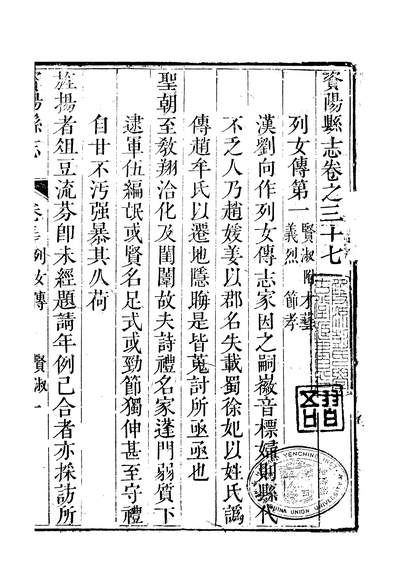 資陽縣志卷之三十七
列女傳第一 賢淑附才藝 義烈 節孝
漢劉向作列女傳志家因之嗣徽音標婦則縣代
不乏人乃趙媛姜以郡名失載蜀徐妃以姓氏譌
傳趙牟氏以遷地隱聯是皆蒐討所亟亟也
聖朝至敎翔洽化及閨闈故夫詩禮名家蓬門弱質下
逮軍伍編氓或賢名足式或勁節獨伸甚至守禮
自甘不汚强暴其仄荷
旌揚者俎豆流芬卽未經題請年例已合者亦採訪所
資陽縣志 卷三十七 列女傳 賢淑 一
YENCHING
CHINA UNION UNIVERSITY